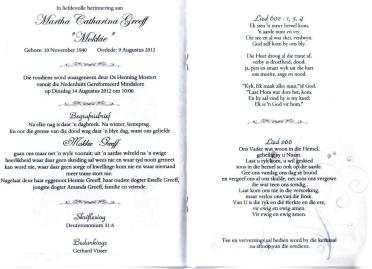 In liefdevolle herinnering aan
Martha Catharina Greeff
"Mokkie"
Gebore: 10 November 1940 Oorlede: 9 Augustus 2012
Die roudiens word waargeneem deur Ds Henning Mostert
vanuit die Nederduits Gereformeerd Mindalore
op Dinsdag 14 Augustus 2012 om 10:00.
Begrafnisbrief
Na elke nag is daar 'n dagbreek, Na winter, lenteprag.
En oor die grense van die dood wag daar 'n blye dag, want ons geliefde
Mokkie Greeff
gaan ons maar net 'n wyle vooruit; uit 'n aardse wêreld na 'n ewige
heerlikheid waar daar geen skeiding sal wees nie en waar tyd nooit gemeet
kan word nie, waar daar geen wrange of kwellinge kom nie en waar niemand
meer treur nie.
Nagelaat deur haar eggenoot Hennie Greeff, haar oudste dogter Estelle Greeff,
jongste dogter Amanda Greeff, familie en vriende.
Skriflesing
Deuteronomium 31:6
Bedankings
Gerhard Visser
Lied 602 : 1, 3, 4
Ek sien 'n nuwe hemel kom,
'n aarde nuut en vry.
Die see en al war skei, verdwyn.
God self kom by ons bly.
Die Heer droog al die trane af,
verby is doodheid, dood.
ja, pyn en smart wyk uit die hart
ons moeite, angs en nood.
"Kyk, Ek maak alles nuut," sê God.
"Laat Hom wat dors het, kom.
En hy sal vind by is my kind:
Ek is 'n God vir hom."
Lied 266
Ons Vader wat woon in die Hemel,
geheilig u Naam.
Laat u ryk kom, u wil geskied
soos in die hemel so ook op die aarde.
Gee ons vandag ons dag se brood
en vergeef ons al ons skulde, net soos ons vergewe
die wat teen ons sondig.
Laat kom ons nie in die versoeking,
maar verlos ons van die Bose.
Van U is die ryk en die sterkte en die ere,
vir ewig en ewig amen.
Vir ewig en ewig amen.
Tee en verversings sal bedien word by die kerksaal
na afloop van die erediens.